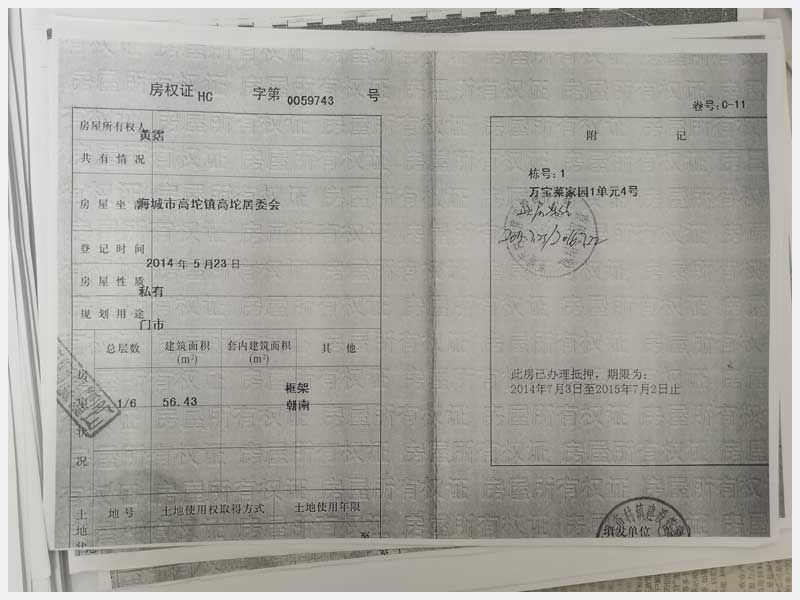 房权证 HC 字第 0059743 号
房屋所有权人 黄霑
共有情况
房屋坐落 海城市高坨镇高坨居委会
登记时间 2014年5月23日
房屋性质 私有
规划用途 门市
总层数 建筑面积(m²) 套内建筑面积(m²) 其他
房屋状况
1/6 56.43 框架
朝南
土地状况
地号 土地使用权取得方式 土地使用年限
至
卷号:0-11
附记
栋号:1
万宝莱家园1单元4号
此房已办理抵押,期限为:
2014年7月3日至2015年7月2日止
村镇建设
填发单位(盖章)